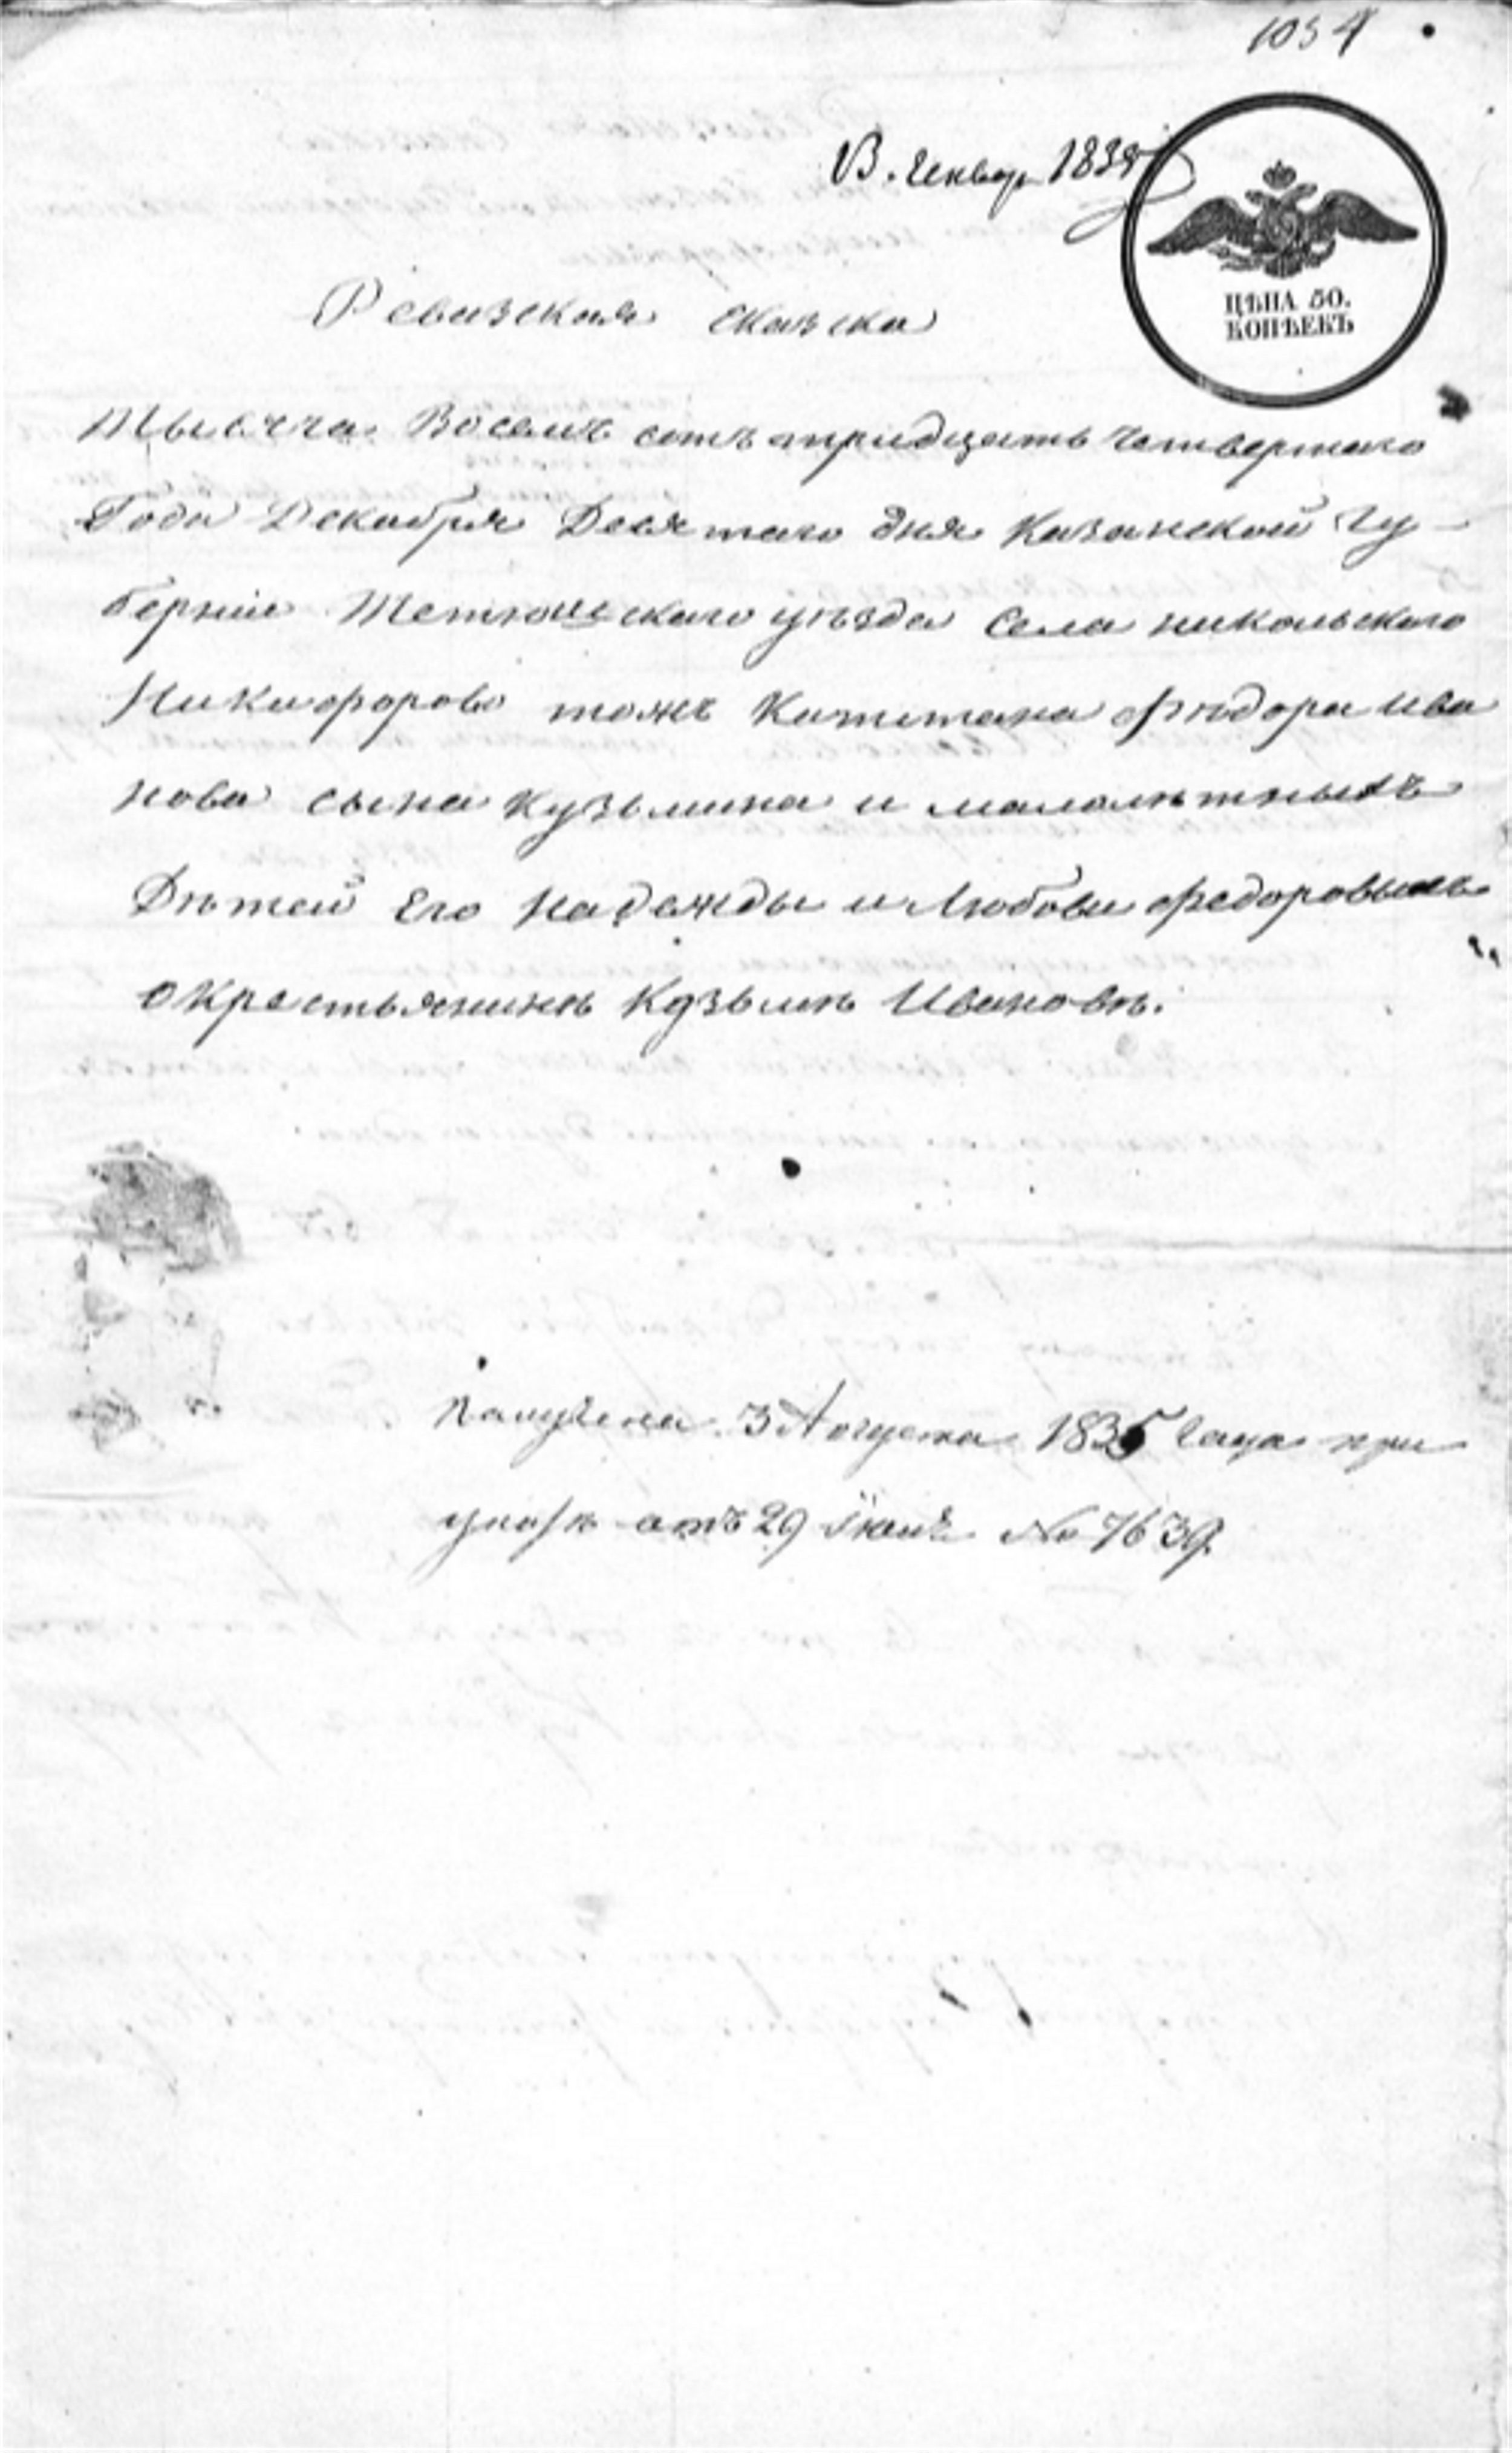 1034
В. Генвар 1835
ЦѢНА 50.
КОПѢЕКЪ
Ревизская сказка
Тысяча Восемь сотъ тридцать Четвертаго
Года Декабря Десятаго дня Казанской Гу-
берніи Тетюшскаго уѣзда Села никольскаго
Никифорово тожъ Капитана Фѣдора ива
нова сына Кузьмина и малолѣтныхъ
Дѣтей Его Надежды и Любови Федоровыхъ
о крестьянинѣ Кузьмѣ Ивановѣ.
Получена 3 Августа 1835 Года при
указѣ отъ 29 Іюля № 7639.